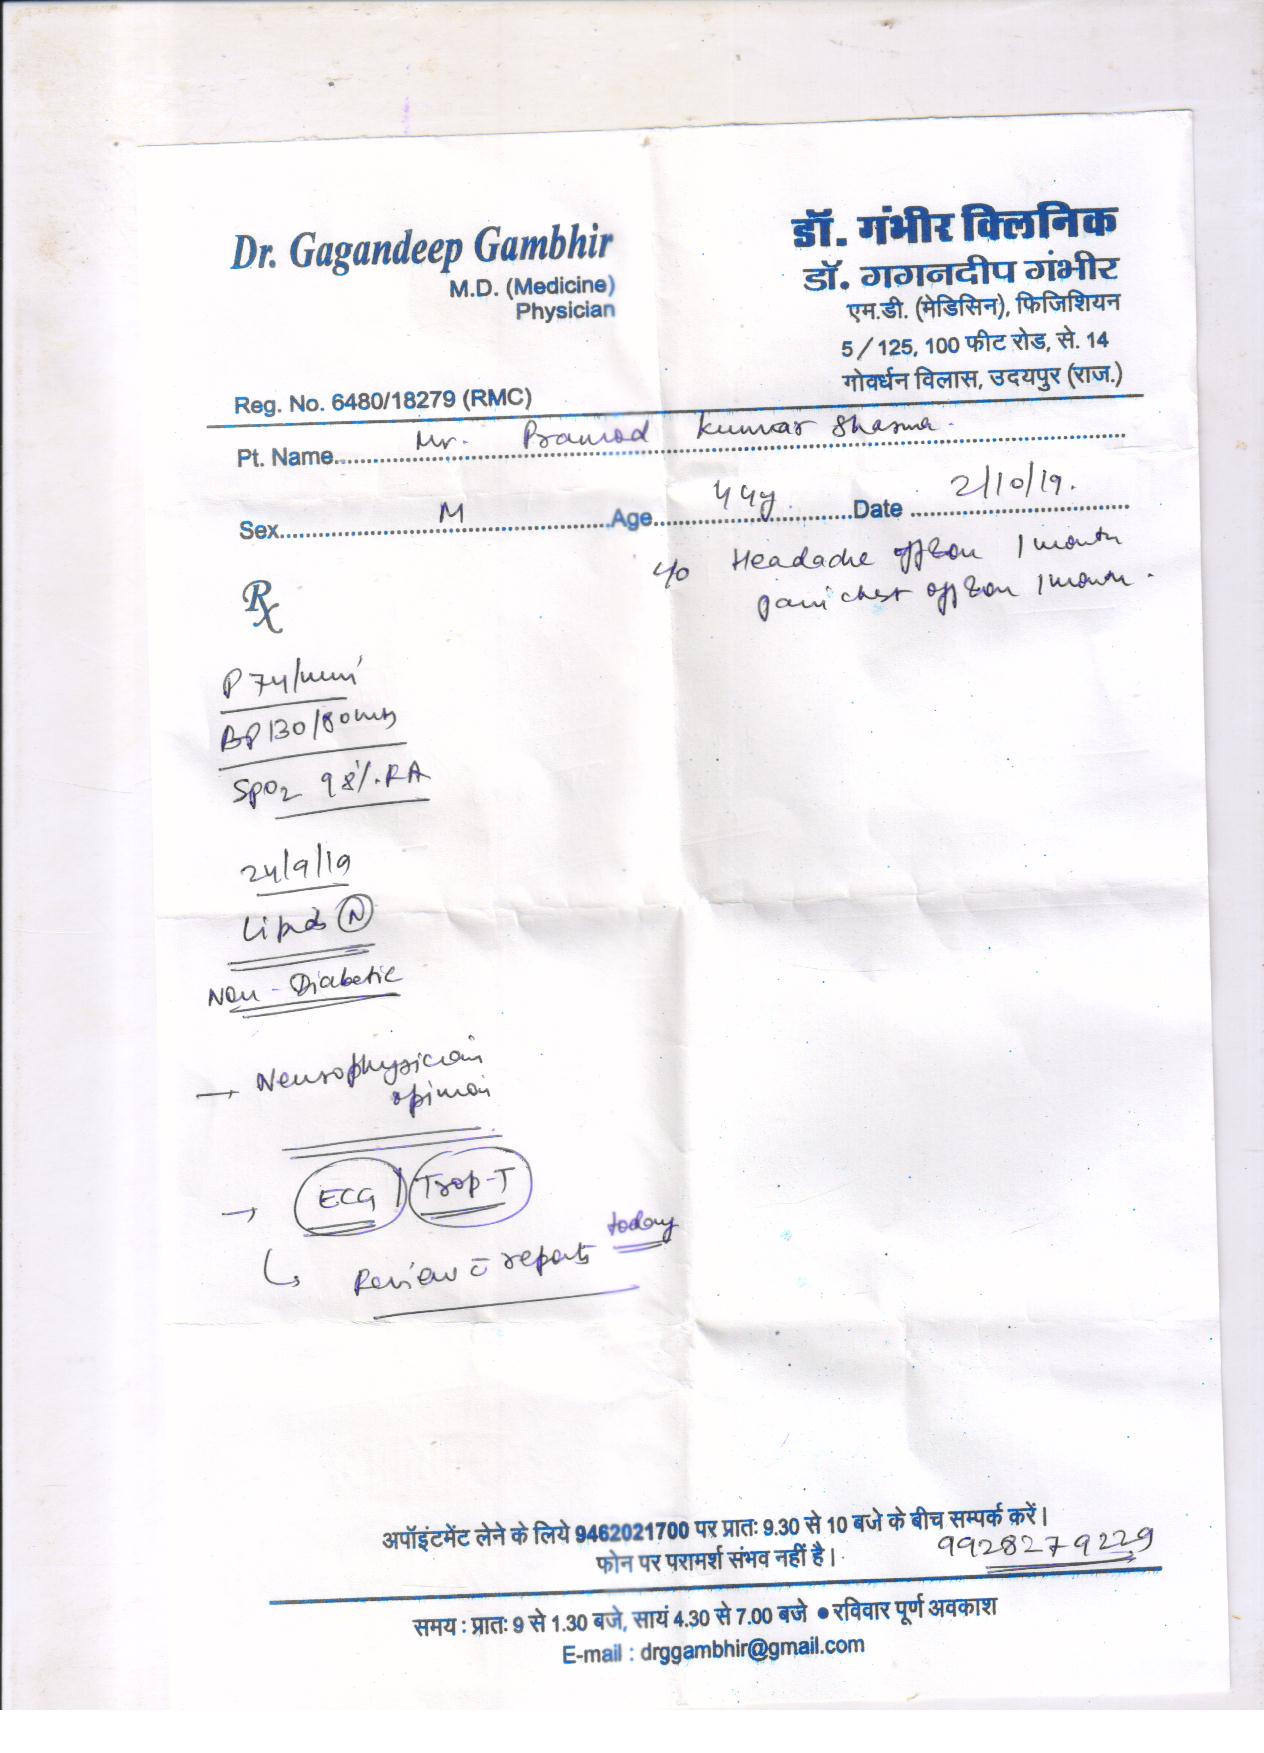 Dr. Gagandeep Gambhir
M.D. (Medicine)
Physician
Reg. No. 6480/18279 (RMC)
डॉ. गंभीर क्लिनिक
डॉ. गगनदीप गंभीर
एम.डी. (मेडिसिन), फिजिशियन
5/125, 100 फीट रोड, से. 14
गोवर्धन विलास, उदयपुर (राज.)
Pt. Name Mr. Pramod Kumar Sharma
Sex M Age 44y Date 2/10/19.
c/o Headache off & on 1 month
pain chest off & on 1 month.
Rx
P 74/min
BP 130/80
SpO2 98%.RA
24/9/19
Lipids N
Non-Diabetic
→ Neurophysician
opinion
→ ECG Trop-T
Review c̄ reports today
अपॉइंटमेंट लेने के लिये 9462021700 पर प्रातः 9.30 से 10 बजे के बीच सम्पर्क करें।
फोन पर परामर्श संभव नहीं है।
9928279229
समय : प्रातः 9 से 1.30 बजे, सायं 4.30 से 7.00 बजे ● रविवार पूर्ण अवकाश
E-mail : drggambhir@gmail.com